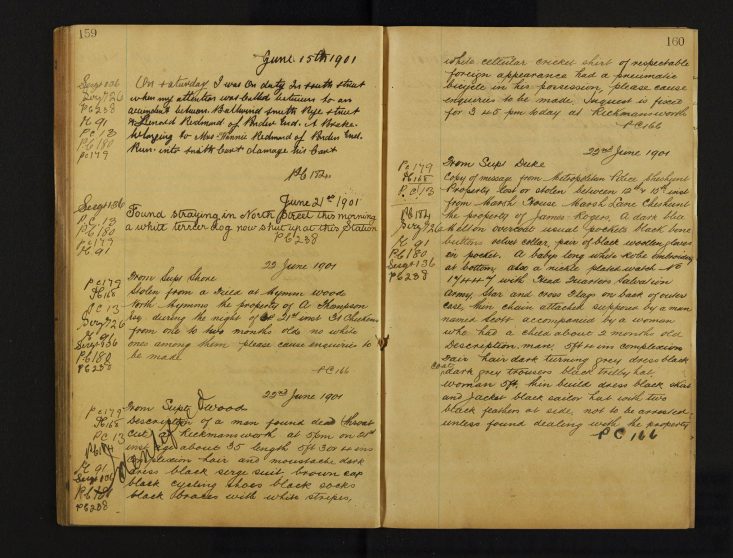 159
June 15th 1901
Sergt 136
Sergt 726
PC 238
K 91
PC 13
PC 180
PC 179
On Saturday I was On duty In South Street
when my attention was Called between to an
accendent between Ballwound Smith Pipe Street
Lenard Redmond of Ponders End. A Brake
belonging to Mrs Fannie Redmond of Ponders End.
Run into Smith Cart damage his Cart
June 21st 1901
Sergt 136
P.C. 13
PC 180
PC 179
K 91
Found straying in North Street this morning
a white terrier dog now shut up at this Station
PC 238
22 June 1901
PC 179
PC 13
Sergt 726
K 91
Sergt 136
PC 180
From Supt Shore
Stolen from a Field at Hymm Wood
North Hymms the property of A Thompson
Esq during the night of 21st inst 31 Chickens
from one to two months olds no white
ones among them please cause enquiries to
be made
PC 166
22nd June 1901
PC 179
PC 13
K 91
Sergt 136
PC 180
PC 238
From Supt Wood
Description of a man found dead throat
cut Rickmansworth at 5 pm on 21st
inst age about 35 length 5ft 3 or 4 ins
complexion hair and moustache dark
dress black serge suit, brown cap
black cycling shoes black socks
black braces with white stripes,
160
white cellular cricket shirt of respectable
foreign appearance had a pneumatic
bicycle in his possession, please cause
enquiries to be made, Inquest is fixed
for 3 45 pm today at Rickmansworth
PC 166
22nd June 1901
PC 179
P.C. 13
Sergt 726
K 91
PC 180
Sergt 136
PC 238
From Supt Duke
Copy of message from Metropolitan Police Cheshunt
Property lost or stolen between 12th & 15th inst
from Marsh House Marsh Lane Cheshunt
the property of James Rogers. A dark blue
Melton overcoat usual pockets black bone
buttons velvet collar, pair of black woollen gloves
in pocket. A babys long white Robe Embroidery
at bottom, also a nickle plated watch No
with Head Quarters Salvation
Army, Star and Cross Flags on back of outer
case, thin chain attached supposed by a man
named Scott accompanied by a woman
who had a child about 2 months old
Description man, 5ft 4 ins complexion
Fair hair dark turning grey dress black
coat, dark grey trousers black trilby hat,
woman 5ft, thin build dress black skirt
and jacket black sailor hat with two
black feathers at side, not to be arrested
unless found dealing with the property
PC 166